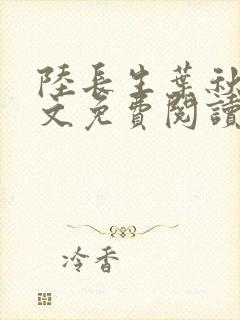 陸長生葉秋
文免費閱讀
冷香